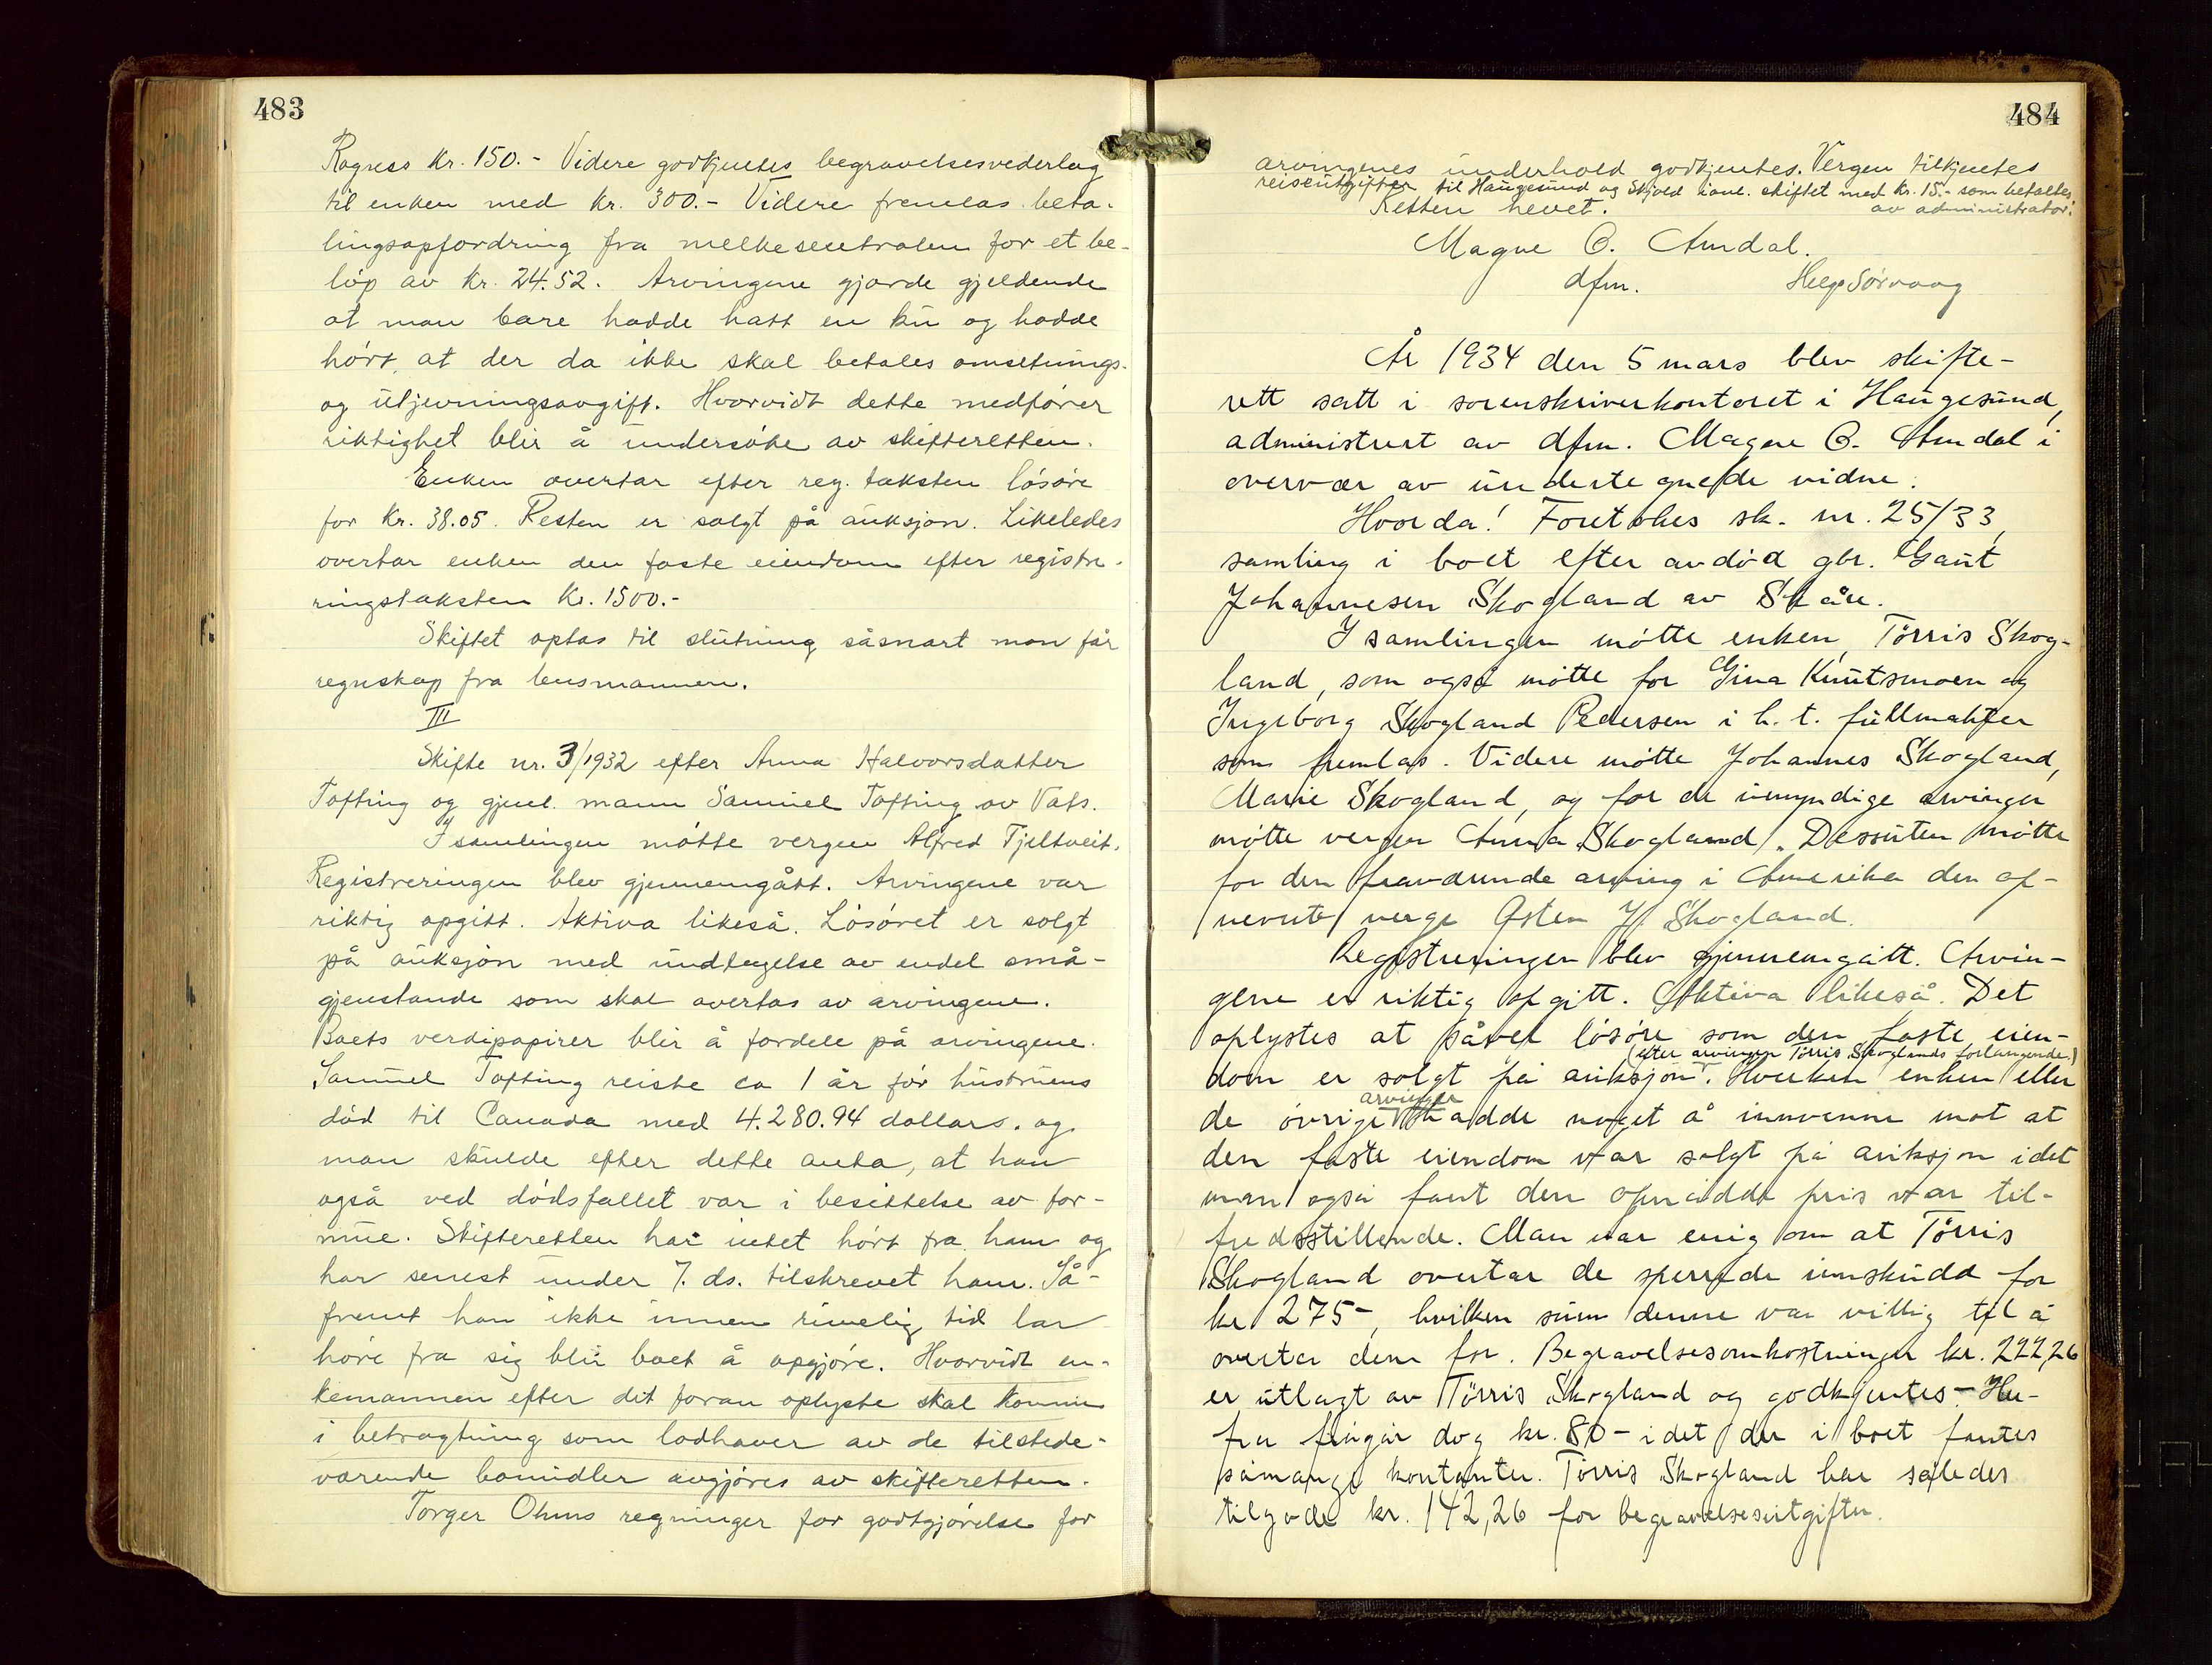 483
Ragness kr. 150.- Videre godkjentes begravelsesvederlag
til enken med kr. 300.- Videre fremlas beta-
lingsopfordring fra melkesentralen for et be-
løp av kr. 24.52. Arvingene gjorde gjeldende
at man bare hadde hatt en ku og hadde
hørt, at der da ikke skal betales omsetnings-
og utjevningsavgift. Hvorvidt dette medfører
riktighet blir å undersøke av skifteretten.
Enken overtar efter reg. taksten løsøre
for kr. 38.05. Resten er solgt på auksjon. Likeledes
overtar enken den faste eiendom efter registre-
ringstaksten kr. 1500.-
Skiftet optas til slutning såsnart man får
regnskap fra lensmannen.
III
Skifte nr. 3/1932 efter Anna Halvorsdatter
Tofting og gjenl. mann Samuel Tofting av Vats.
I samlingen møtte vergen Alfred Fjeltveit.
Registreringen blev gjennemgått. Arvingene var
riktig opgitt. Aktiva likeså. Løsøret er solgt
på auksjon med undtagelse av endel små-
gjenstande som skal overtas av arvingene.
Boets verdipapirer blir å fordele på arvingene.
Samuel Tofting reiste ca 1 år før hustruens
død til Canada med 4.280.94 dollars. og
man skulde efter dette anta, at han
også ved dødsfallet var i besittelse av for-
mue. Skifteretten har intet hørt fra ham og
har senest under 7. ds. tilskrevet ham. Så-
fremt han ikke innen rimelig tid lar
høre fra sig blir boet å opgjøre. Hvorvidt en-
kemannen efter det foran oplyste skal komme
i betragtning som lodhaver av de tilstede-
værende bomidler avgjøres av skifteretten.
Torger Ohms regninger for godtgjørelse for
484
arvingenes underhold godkjentes. Vergen tilkjentes
reiseutgifter til Haugesund og Skjold i anl. skiftet med kr. 15.- som betaltes
av administrator.
Retten hevet.
Magne O. Amdal.
dfm. Helge Sørvaag
År 1934 den 5 mars blev skifte-
rett satt i sorenskriverkontoret i Haugesund,
administrert av dfm. Magne O. Amdal i
overvær av undertegnede vidne.
Hvorda! Foretokes sk. nr. 25/33,
samling i boet efter avdød gbr. Gaut
Johannesen Skogland av Skåre.
I samlingen møtte enken, Tørris Skog-
land, som også møtte for Gina Knutsmoen og
Ingeborg Skogland Pedersen i h. t. fullmakter
som fremlas. Videre møtte Johannes Skogland,
Marie Skogland, og for de umyndige arvinger
møtte vergen Anna Skogland. Dessuten møtte
for den fraværende arving i Amerika den op-
nevnte verge Østen J. Skogland.
Registreringen blev gjennemgått. Arvin-
gene er riktig opgitt. Aktiva likeså. Det
oplystes at såvel løsøre som den faste eien-
(efter arvingen Tørris Skoglands forlangende.)
dom er solgt på auksjon. Hverken enken eller
arvinger
de øvrige hadde noget å innvenne mot at
den faste eiendom var solgt på auksjon idet
man også fant den opnådde pris var til-
fredsstillende. Man var enig om at Tørris
Skogland overtar de sperrede innskudd for
kr 275-, hvilken sum denne var villig til å
overta dem for. Begravelsesomkostninger kr. 222,26
er utlagt av Tørris Skogland og godkjentes - Her-
fra fragår dog kr. 80 - idet der i boet fantes
såmange kontanter. Tørris Skogland har således
tilgode kr. 142,26 for begravelsesutgifter.